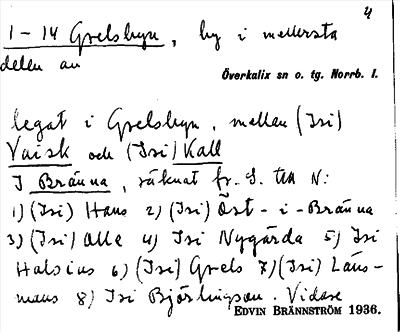 4
1-14 Grelsbyn, by i mellersta
delen av
Överkalix sn o. tg. Norrb. l.
legat i Grelsbyn, mellan (Isi)
Vaisk och (Isi) Kall
I Bränna, räknat fr. S. till N:
1) (Isi) Hans 2) (Isi) Öst-i-Bränna
3) (Isi) Olle 4) Isi Nygårda 5) Isi
Halsius 6) (Isi) Grels 7) (Isi) Läns-
mans 8) Isi Björlingson. Vidare
EDVIN BRÄNNSTRÖM 1936.